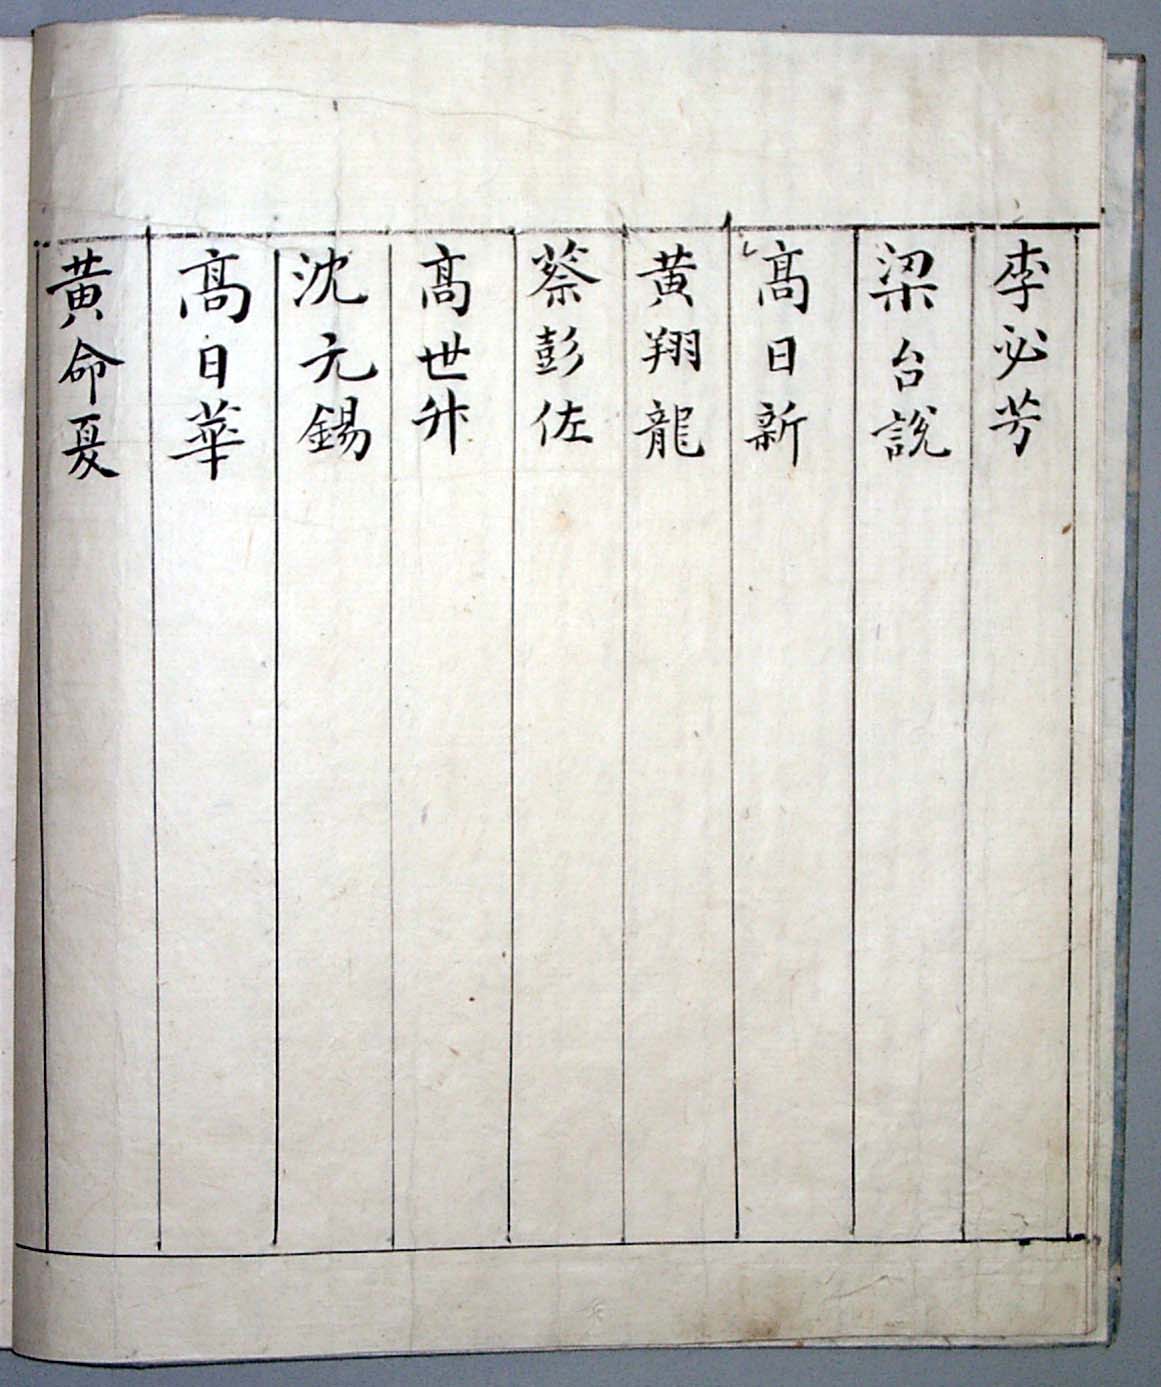 李必芳
梁台說
髙日新
黄翔龍
蔡彭佐
髙世升
沈元錫
髙日華
黄命夏